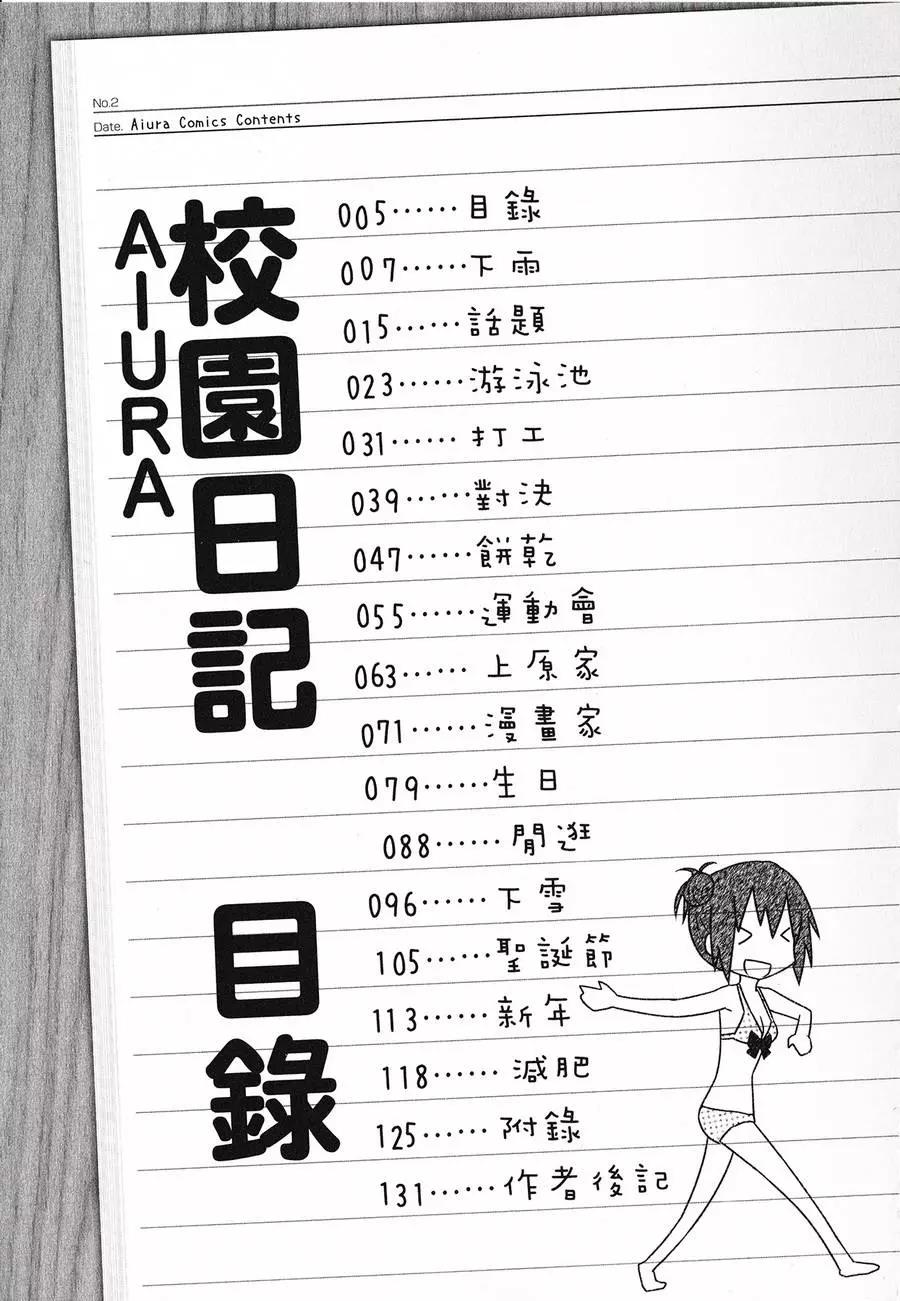 No.2
Date. Aiura Comics Contents
校園日記
AIURA
目錄
005……目錄
007……下雨
015……話題
023……游泳池
031……打工
039……對決
047……餅乾
055……運動會
063……上原家
071……漫畫家
079……生日
088……閒逛
096……下雪
105……聖誕節
113……新年
118……減肥
125……附錄
131……作者後記